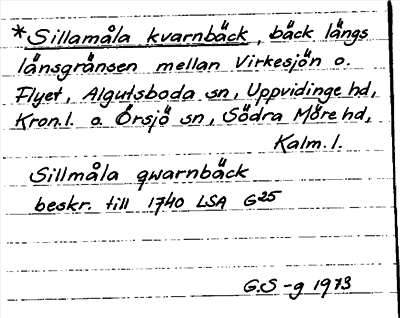 *Sillamåla kvarnbäck, bäck längs
länsgränsen mellan Virkesjön o.
Flyet, Algutsboda sn, Uppvidinge hd,
Kron.l. o. Örsjö sn, Södra Möre hd,
Kalm. l.
Sillmåla qwarnbäck
beskr. till 1740 LSA G25
G.S-g 1973